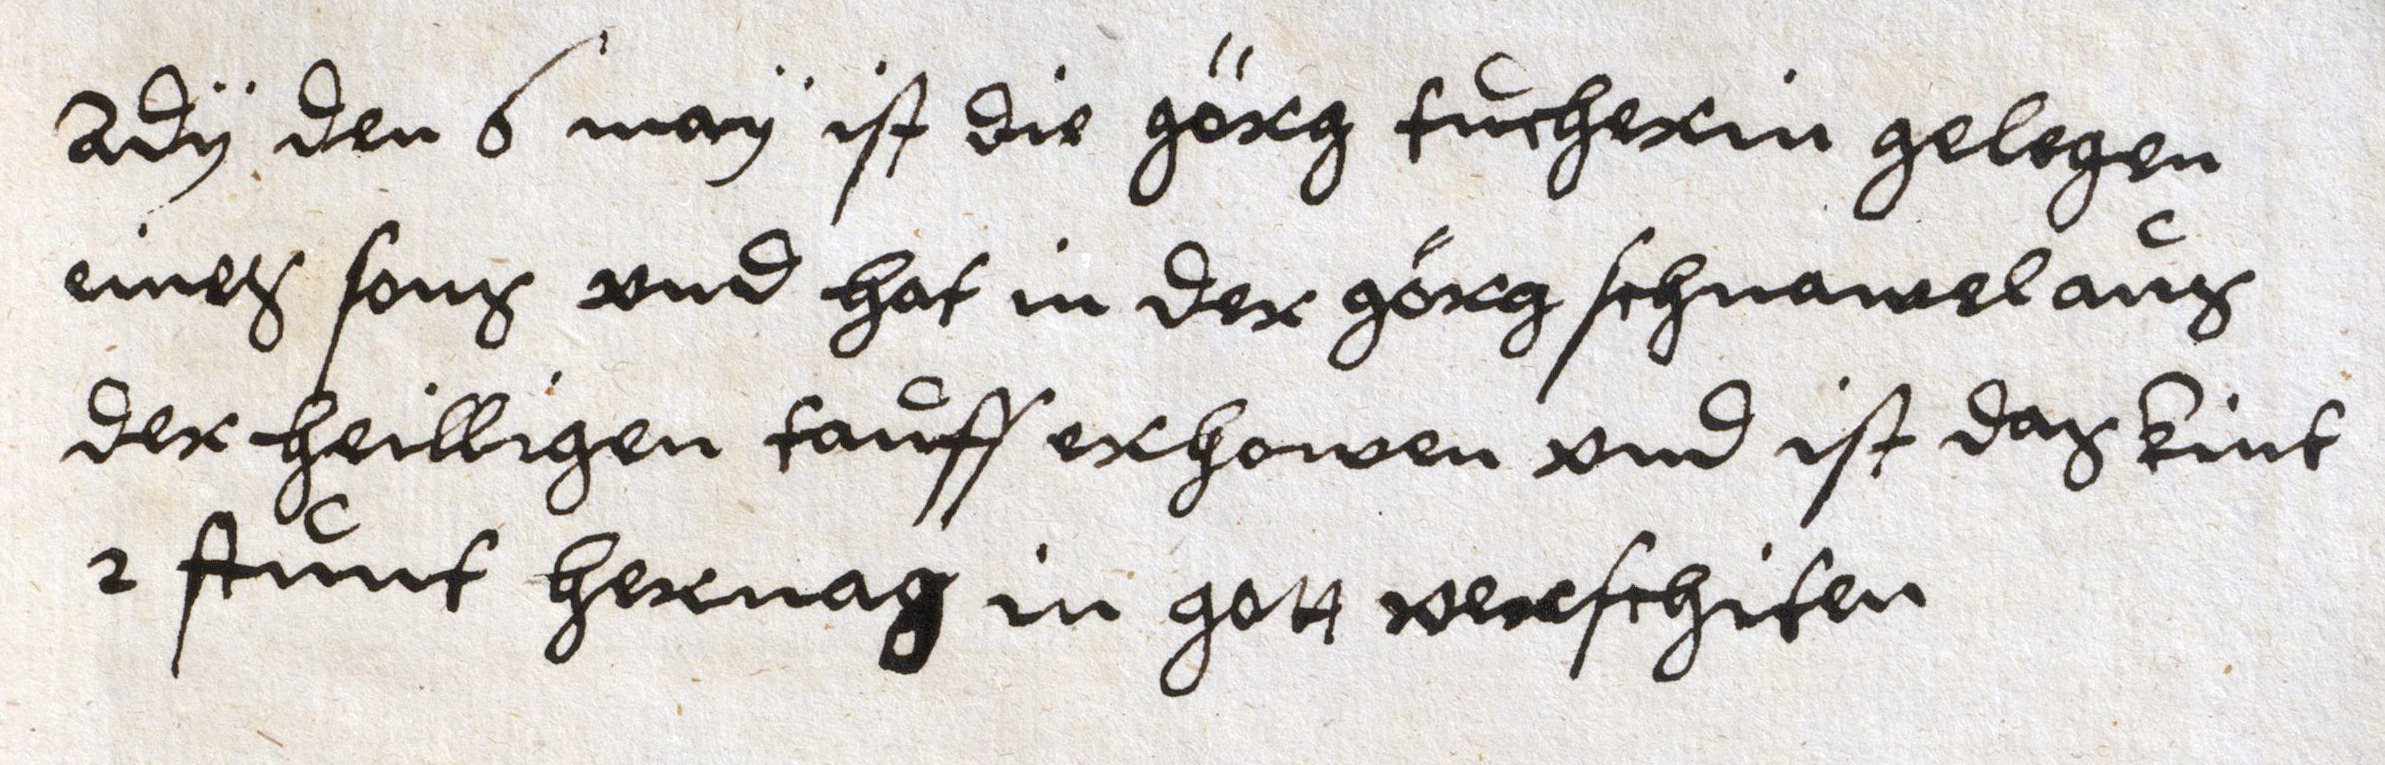 Adÿ den 6 maÿ ist die görg tucherin gelegen
eines sons vnd hat in der görg schnawel aus
der heilligen tauff erhowen vnd ist das kint
2 stunt hernag in gott verschiten